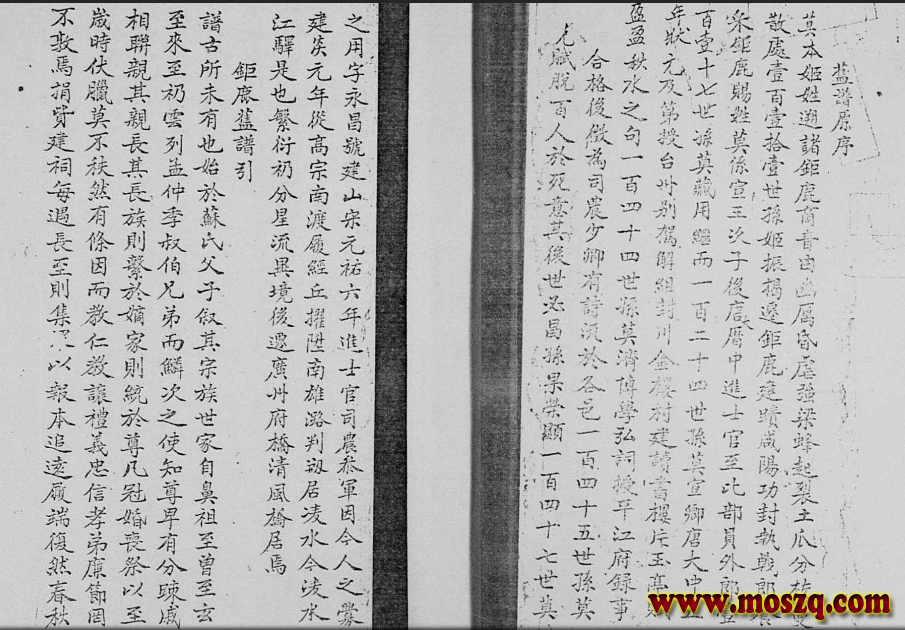 舊譜原序
莫本姬姓遡諸鉅鹿商音由幽厲昏虐強梁蜂起裂土瓜分族
散處壹百壹拾壹世孫姬振揚遼鉅鹿建蹟咸陽功封執戟郎
采鉅鹿賜姓莫係宣王次子後唐曆中進士官至比部員外郎
百壹十七世孫莫藏用繼而一百二十四世孫莫宣卿唐大中
年狀元及第授台州别駕解組封川金樓村建讀書樓片玉亭
盈盈秋水之句一百四十四世孫莫濟博學弘詞授平江府録事
合格後徵為司農少卿有詩流於各邑一百四十五世孫莫
元賦脫百人於死意其後世必昌孫果榮顯一百四十七世莫
之用字永昌號建山宋元祐六年進士官司農叅軍因令人之
建炎元年從高宗南渡履經丘擢陞南雄路判叔居凌水今凌水
江驛是也繁衍礽分星流異境後遷廣州府橋清風橋居焉
鉅鹿舊譜引
譜古所未有也始於蘇氏父子叙其宗族世家自鼻祖至曾至玄
至來至礽雲列孟仲季叔伯兄弟而鱗次之使知尊卑有分踈戚
相聯親其親長其長族則繫於嫡家則統於尊凡冠婚喪祭以至
歲時伏臘莫不秩然有條因而教仁教讓禮義忠信孝弟廉節罔
不敦焉捐貲建祠每過長至則集以報本追遠履端復然春秋
www.moszq.com